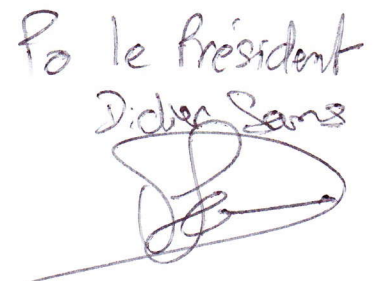 Po le Président
Didier Sans